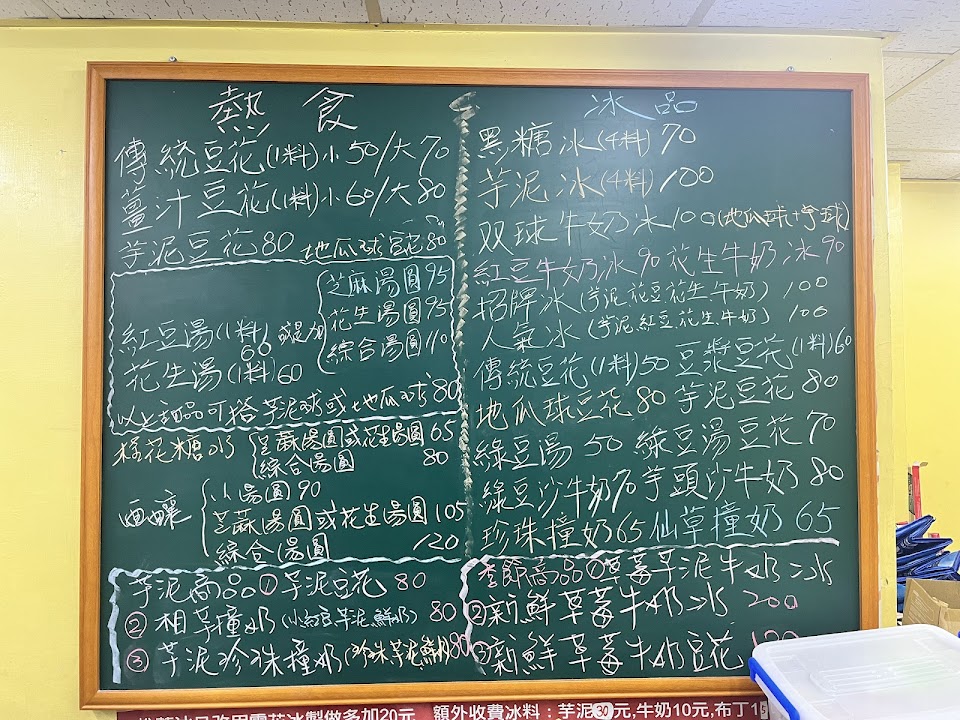 熱食
傳統豆花(1料)小50/大70
薑汁豆花(1料)小60/大80
芋泥豆花80 地瓜球豆花80
紅豆湯(1料)60 或是加
芝麻湯圓95
花生湯圓95
綜合湯圓110
花生湯(1料)60
以上甜品可搭芋泥球或地瓜球80
桂花糖水
芝蔴湯圓或花生湯圓65
綜合湯圓 80
酒釀
小湯圓90
芝蔴湯圓或花生湯圓105
綜合湯圓 120
芋泥商品①芋泥豆花80
②相草撞奶(小紅豆.芋泥.鮮奶) 80
③芋泥珍珠撞奶(珍珠芋泥鮮奶)80
冰品
黑糖冰(4料)70
芋泥冰(4料)100
双球牛奶冰100(地瓜球+芋球)
紅豆牛奶冰90 花生牛奶冰90
招牌冰(芋泥.花豆花生.牛奶) 100
人氣冰(芋泥.紅豆花生.牛奶) 100
傳統豆花(1料)50 豆漿豆花(1料)60
地瓜球豆花80 芋泥豆花80
綠豆湯 50 綠豆湯豆花70
綠豆沙牛奶70 芋頭沙牛奶80
珍珠撞奶65 仙草撞奶65
季節商品①草莓芋泥牛奶冰
②新鮮草莓牛奶冰 200
③新鮮草莓牛奶豆花
冰品改用雪花冰製做多加20元 額外收費冰料：芋泥30元,牛奶10元,布丁